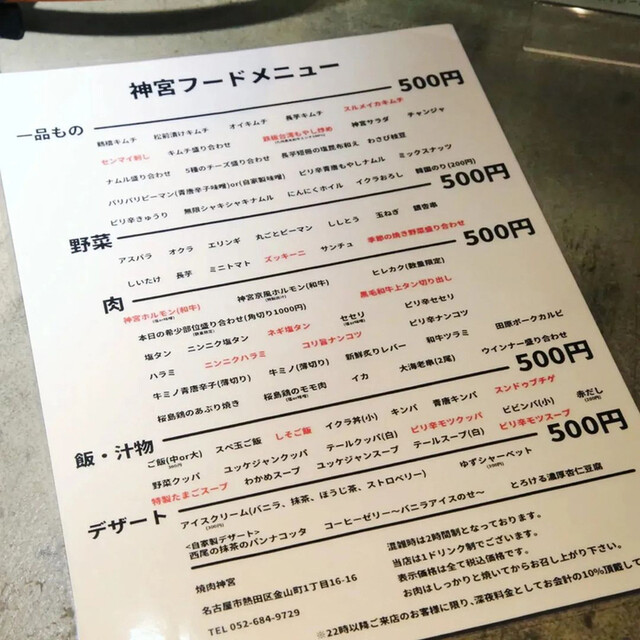 神宮フードメニュー
一品もの 500円
熟積キムチ 松前漬けキムチ オイキムチ 長芋キムチ スルメイカキムチ
センマイ刺し キムチ盛り合わせ 鉄板台湾もやし炒め 神宮サラダ チャンジャ
ナムル盛り合わせ 5種のチーズ盛り合わせ 長芋短冊の塩昆布和え わさび枝豆
パリパリピーマン(青唐辛子味噌)or(自家製味噌) ピリ辛青唐もやしナムル ミックスナッツ
ピリ辛きゅうり 無限シャキシャキナムル にんにくホイル イクラおろし 韓国のり(200円)
野菜 500円
アスパラ オクラ エリンギ 丸ごとピーマン ししとう 玉ねぎ 銀杏串
しいたけ 長芋 ミニトマト ズッキーニ サンチュ 季節の焼き野菜盛り合わせ
肉 500円
神宮ホルモン(和牛) 神宮京風ホルモン(和牛) ヒレカク(数量限定)
本日の希少部位盛り合わせ(角切り1000円) 黒毛和牛上タン切り出し
塩タン ニンニク塩タン ネギ塩タン セセリ ピリ辛セセリ
ハラミ ニンニクハラミ コリ旨ナンコツ ピリ辛ナンコツ
牛ミノ青唐辛子(薄切り) 牛ミノ(薄切り) 新鮮炙りレバー 和牛ツラミ 田原ポークカルビ
桜島鶏のあぶり焼き 桜島鶏のモモ肉 イカ 大海老串(2尾) ウインナー盛り合わせ
飯・汁物 500円
ご飯(中or大) スペ玉ご飯 しそご飯 イクラ丼(小) キンパ 青唐キンパ スンドゥブチゲ
野菜クッパ ユッケジャンクッパ テールクッパ(白) ピリ辛モツクッパ ビビンバ(小) 赤だし
特製たまごスープ わかめスープ ユッケジャンスープ テールスープ(白) ピリ辛モツスープ
デザート 500円
アイスクリーム(バニラ、抹茶、ほうじ茶、ストロベリー) ゆずシャーベット
<自家製デザート>
西尾の抹茶のパンナコッタ コーヒーゼリー〜バニラアイスのせ〜 とろける濃厚杏仁豆腐
焼肉神宮
名古屋市熱田区金山町1丁目16-16
TEL 052-684-9729
混雑時は2時間制となっております。
当店は1ドリンク制でございます。
表示価格は全て税込価格です。
お肉はしっかりと焼いてからお召し上がり下さい。
※22時以降ご来店のお客様に限り、深夜料金としてお会計の10%頂戴して